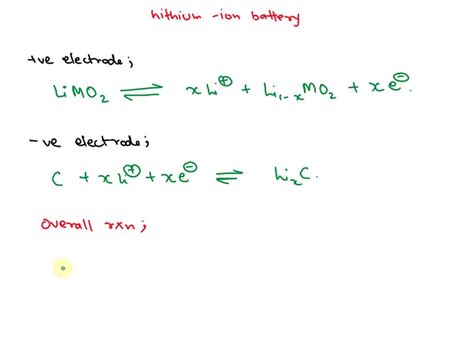 Lithium-ion battery
+ve electrode;
LiMO₂ ⇌ xLi⊕ + Li₁₋ₓMO₂ + xe⊖.
-ve electrode;
C + xLi⊕ + xe⊖ ⇌ LiₓC.
Overall rxn;